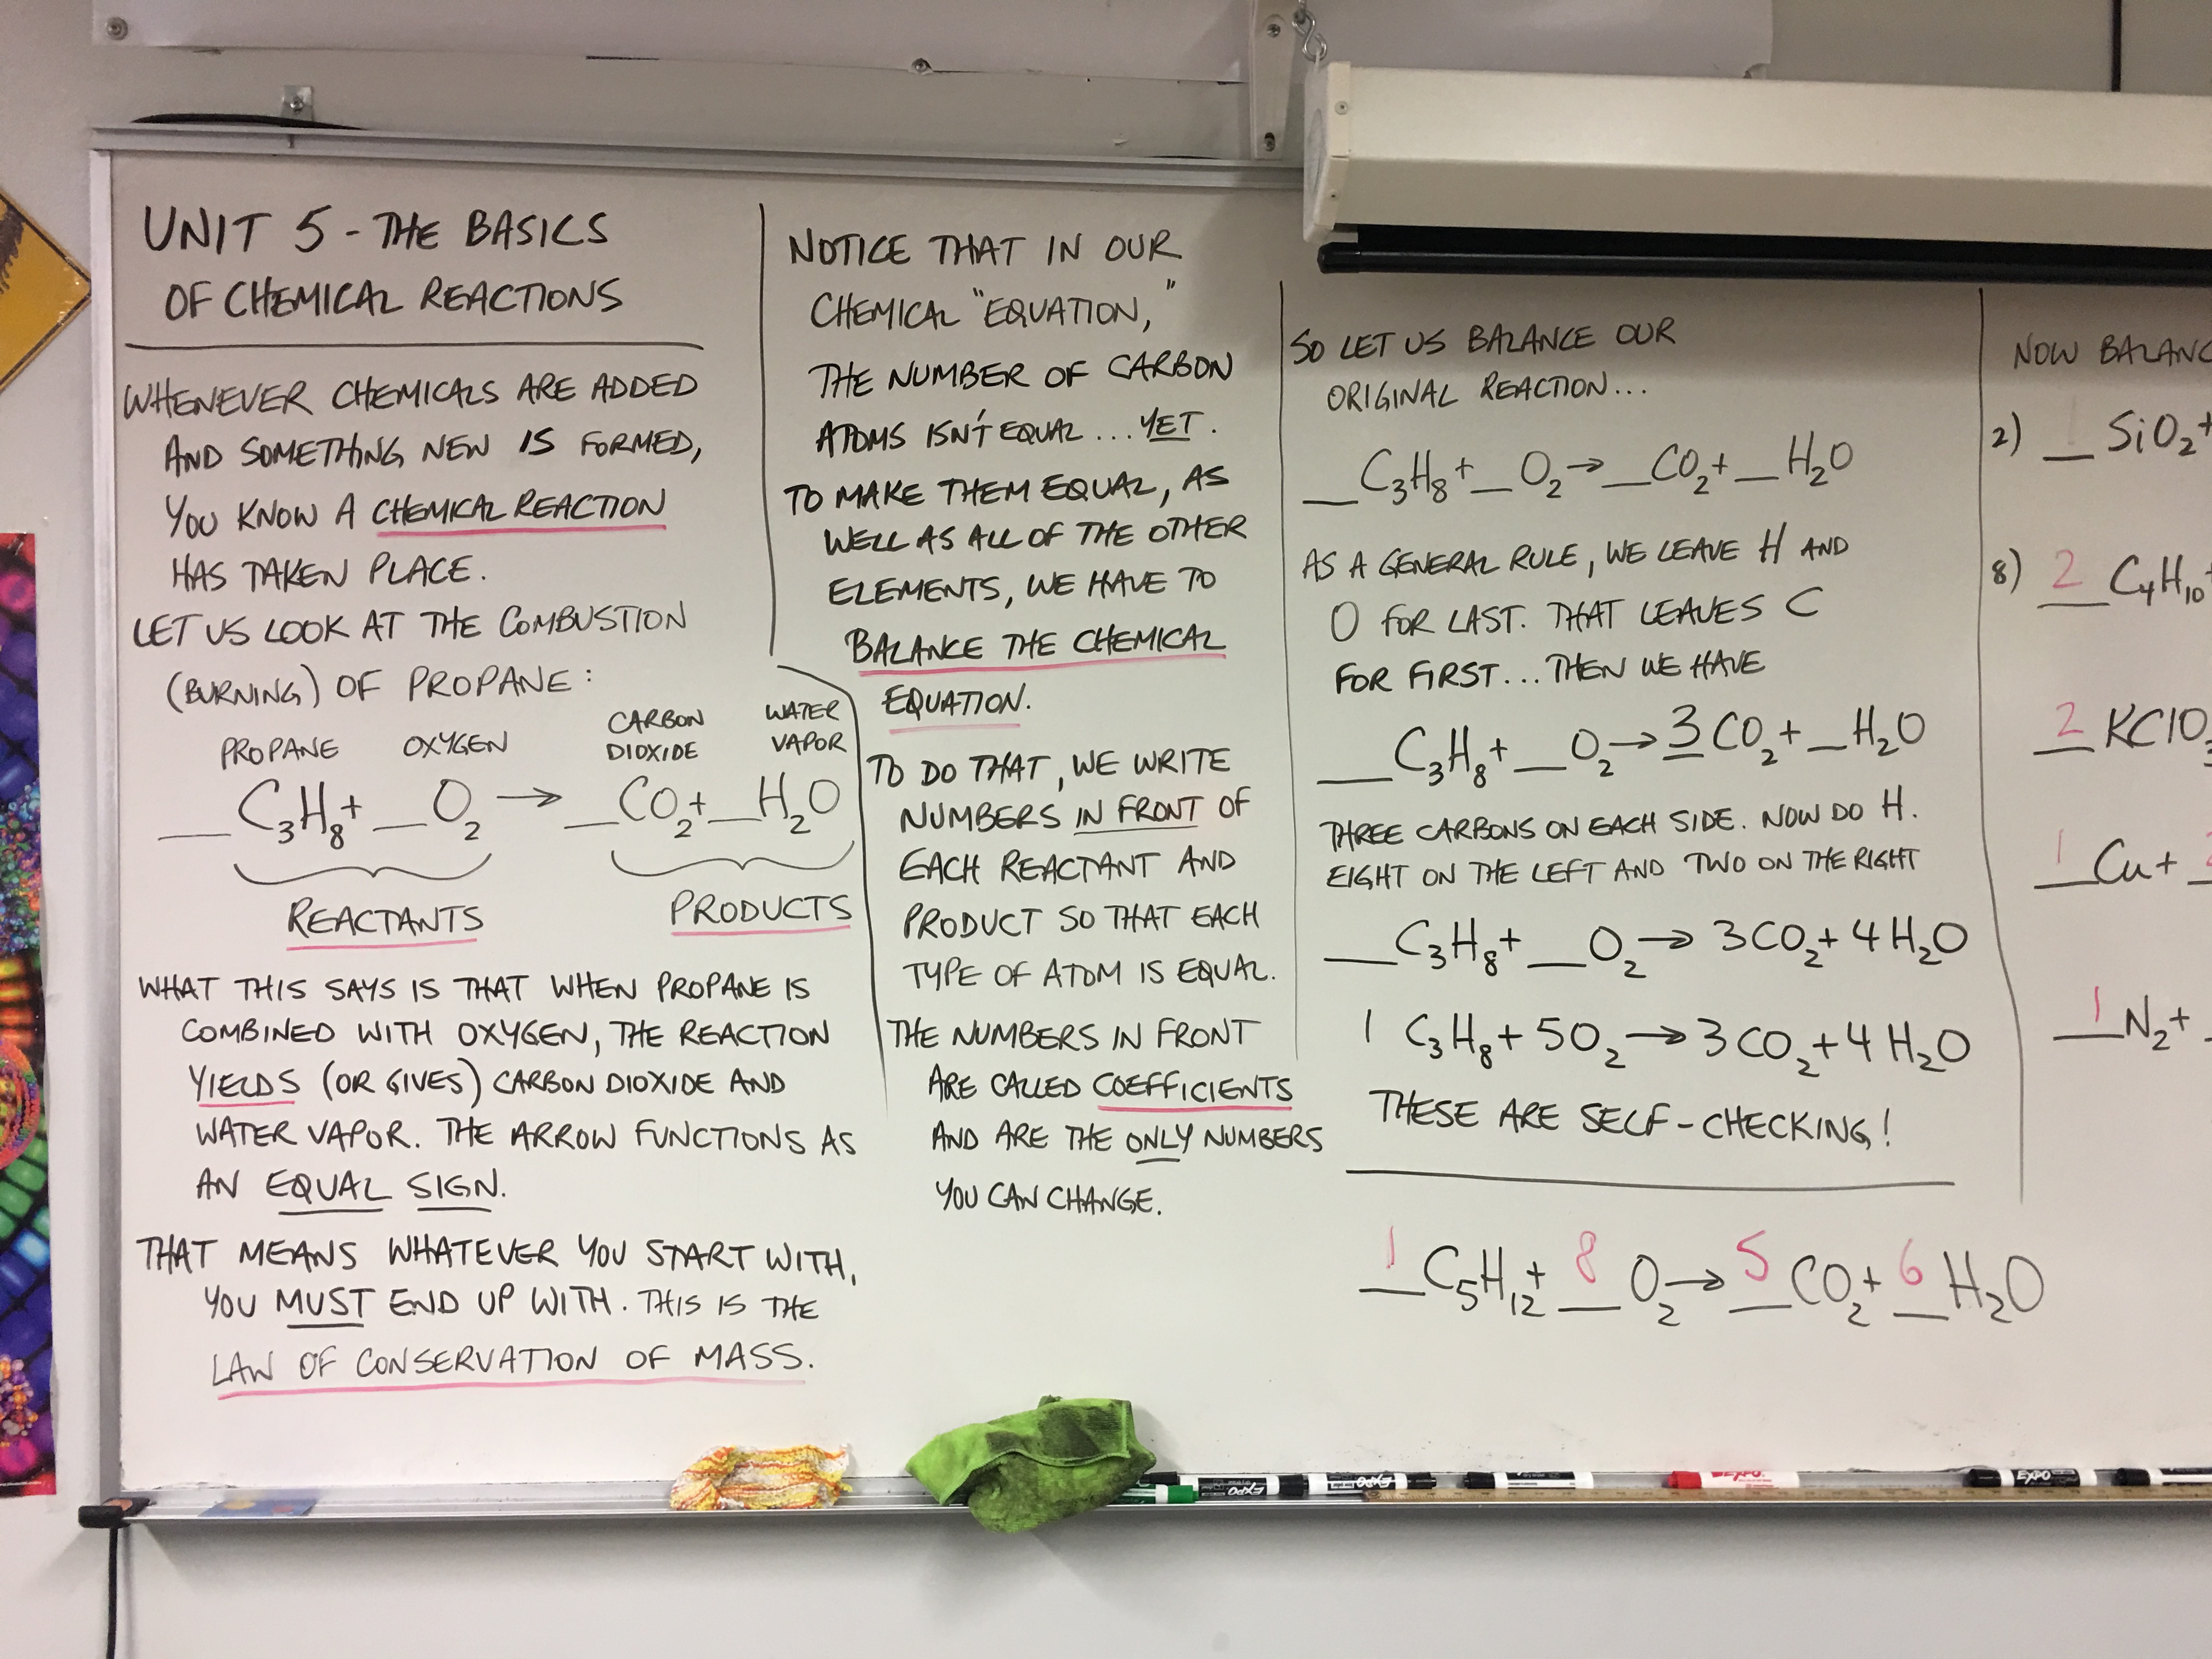 UNIT 5 - THE BASICS
OF CHEMICAL REACTIONS
WHENEVER CHEMICALS ARE ADDED
AND SOMETHING NEW IS FORMED,
YOU KNOW A CHEMICAL REACTION
HAS TAKEN PLACE.
LET US LOOK AT THE COMBUSTION
(BURNING) OF PROPANE:
PROPANE OXYGEN CARBON DIOXIDE WATER VAPOR
__C₃H₈ + __O₂ → __CO₂ + __H₂O
REACTANTS PRODUCTS
WHAT THIS SAYS IS THAT WHEN PROPANE IS
COMBINED WITH OXYGEN, THE REACTION
YIELDS (OR GIVES) CARBON DIOXIDE AND
WATER VAPOR. THE ARROW FUNCTIONS AS
AN EQUAL SIGN.
THAT MEANS WHATEVER YOU START WITH,
YOU MUST END UP WITH. THIS IS THE
LAW OF CONSERVATION OF MASS.
NOTICE THAT IN OUR
CHEMICAL "EQUATION,"
THE NUMBER OF CARBON
ATOMS ISN'T EQUAL... YET.
TO MAKE THEM EQUAL, AS
WELL AS ALL OF THE OTHER
ELEMENTS, WE HAVE TO
BALANCE THE CHEMICAL
EQUATION.
TO DO THAT, WE WRITE
NUMBERS IN FRONT OF
EACH REACTANT AND
PRODUCT SO THAT EACH
TYPE OF ATOM IS EQUAL.
THE NUMBERS IN FRONT
ARE CALLED COEFFICIENTS
AND ARE THE ONLY NUMBERS
YOU CAN CHANGE.
SO LET US BALANCE OUR
ORIGINAL REACTION...
__C₃H₈ + __O₂ → __CO₂ + __H₂O
AS A GENERAL RULE, WE LEAVE H AND
O FOR LAST. THAT LEAVES C
FOR FIRST... THEN WE HAVE
__C₃H₈ + __O₂ → 3CO₂ + __H₂O
THREE CARBONS ON EACH SIDE. NOW DO H.
EIGHT ON THE LEFT AND TWO ON THE RIGHT
__C₃H₈ + __O₂ → 3CO₂ + 4H₂O
1 C₃H₈ + 5O₂ → 3CO₂ + 4H₂O
THESE ARE SELF-CHECKING!
1 C₅H₁₂ + 8 O₂ → 5 CO₂ + 6 H₂O
NOW BALANC
2) 1 SiO₂ +
8) 2 C₄H₁₀ +
2 KClO₃
1 Cu +
1 N₂ +
EXPO
EXPO
EXPO
EXPO